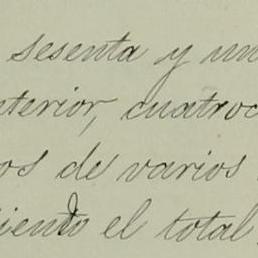 sesenta y un
nterior, cuatroc
os de varios
iendo el total